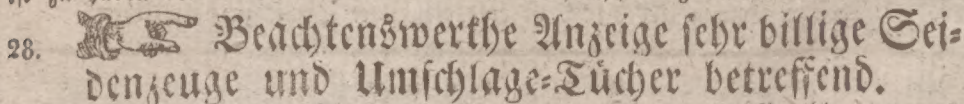 28. ☞ Beachtenswerthe Anzeige sehr billige Sei⸗
denzeuge und Umschlage⸗Tücher betreffend.